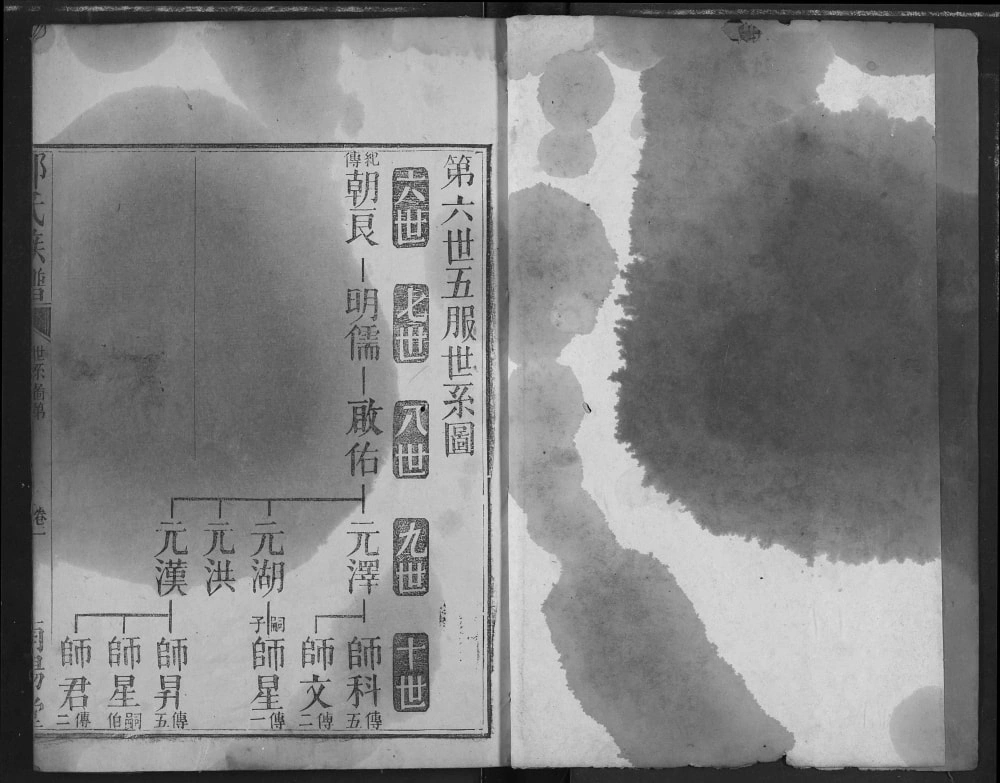 第六世五服世系圖
六世 七世 八世 九世 十世
紀傳 朝艮 明儒 啟佑 元澤 師科 傳五
師文 傳二
元湖 嗣子 師星 傳一
元洪
元漢 師昇 傳五
師星 嗣伯
師君 傳二
氏族譜 世系圖第 卷一